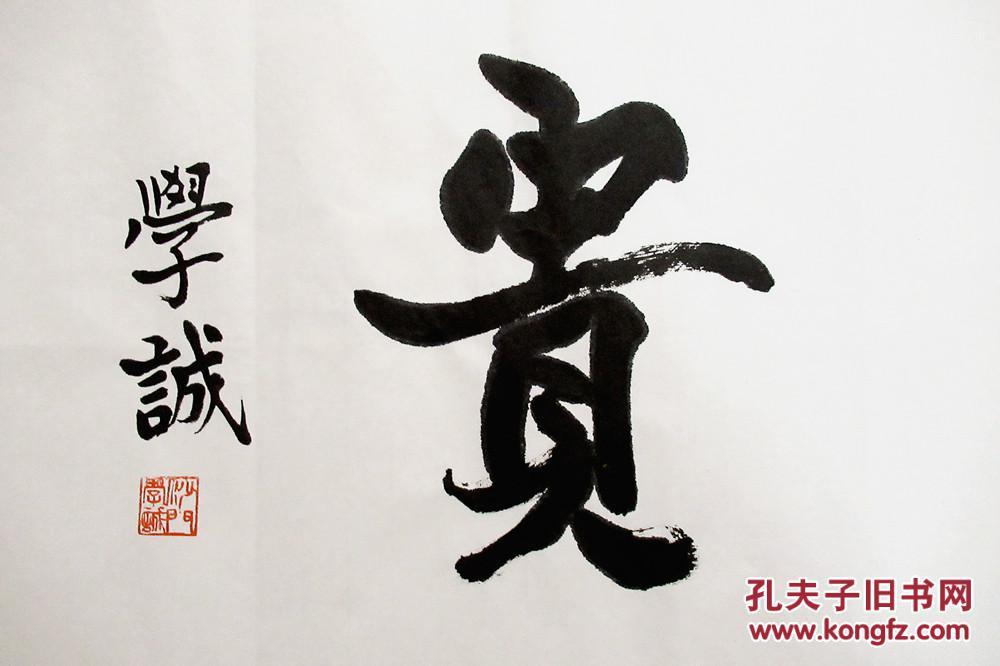 貴
學誠
沙門
學誠
孔夫子旧书网
www.kongfz.com